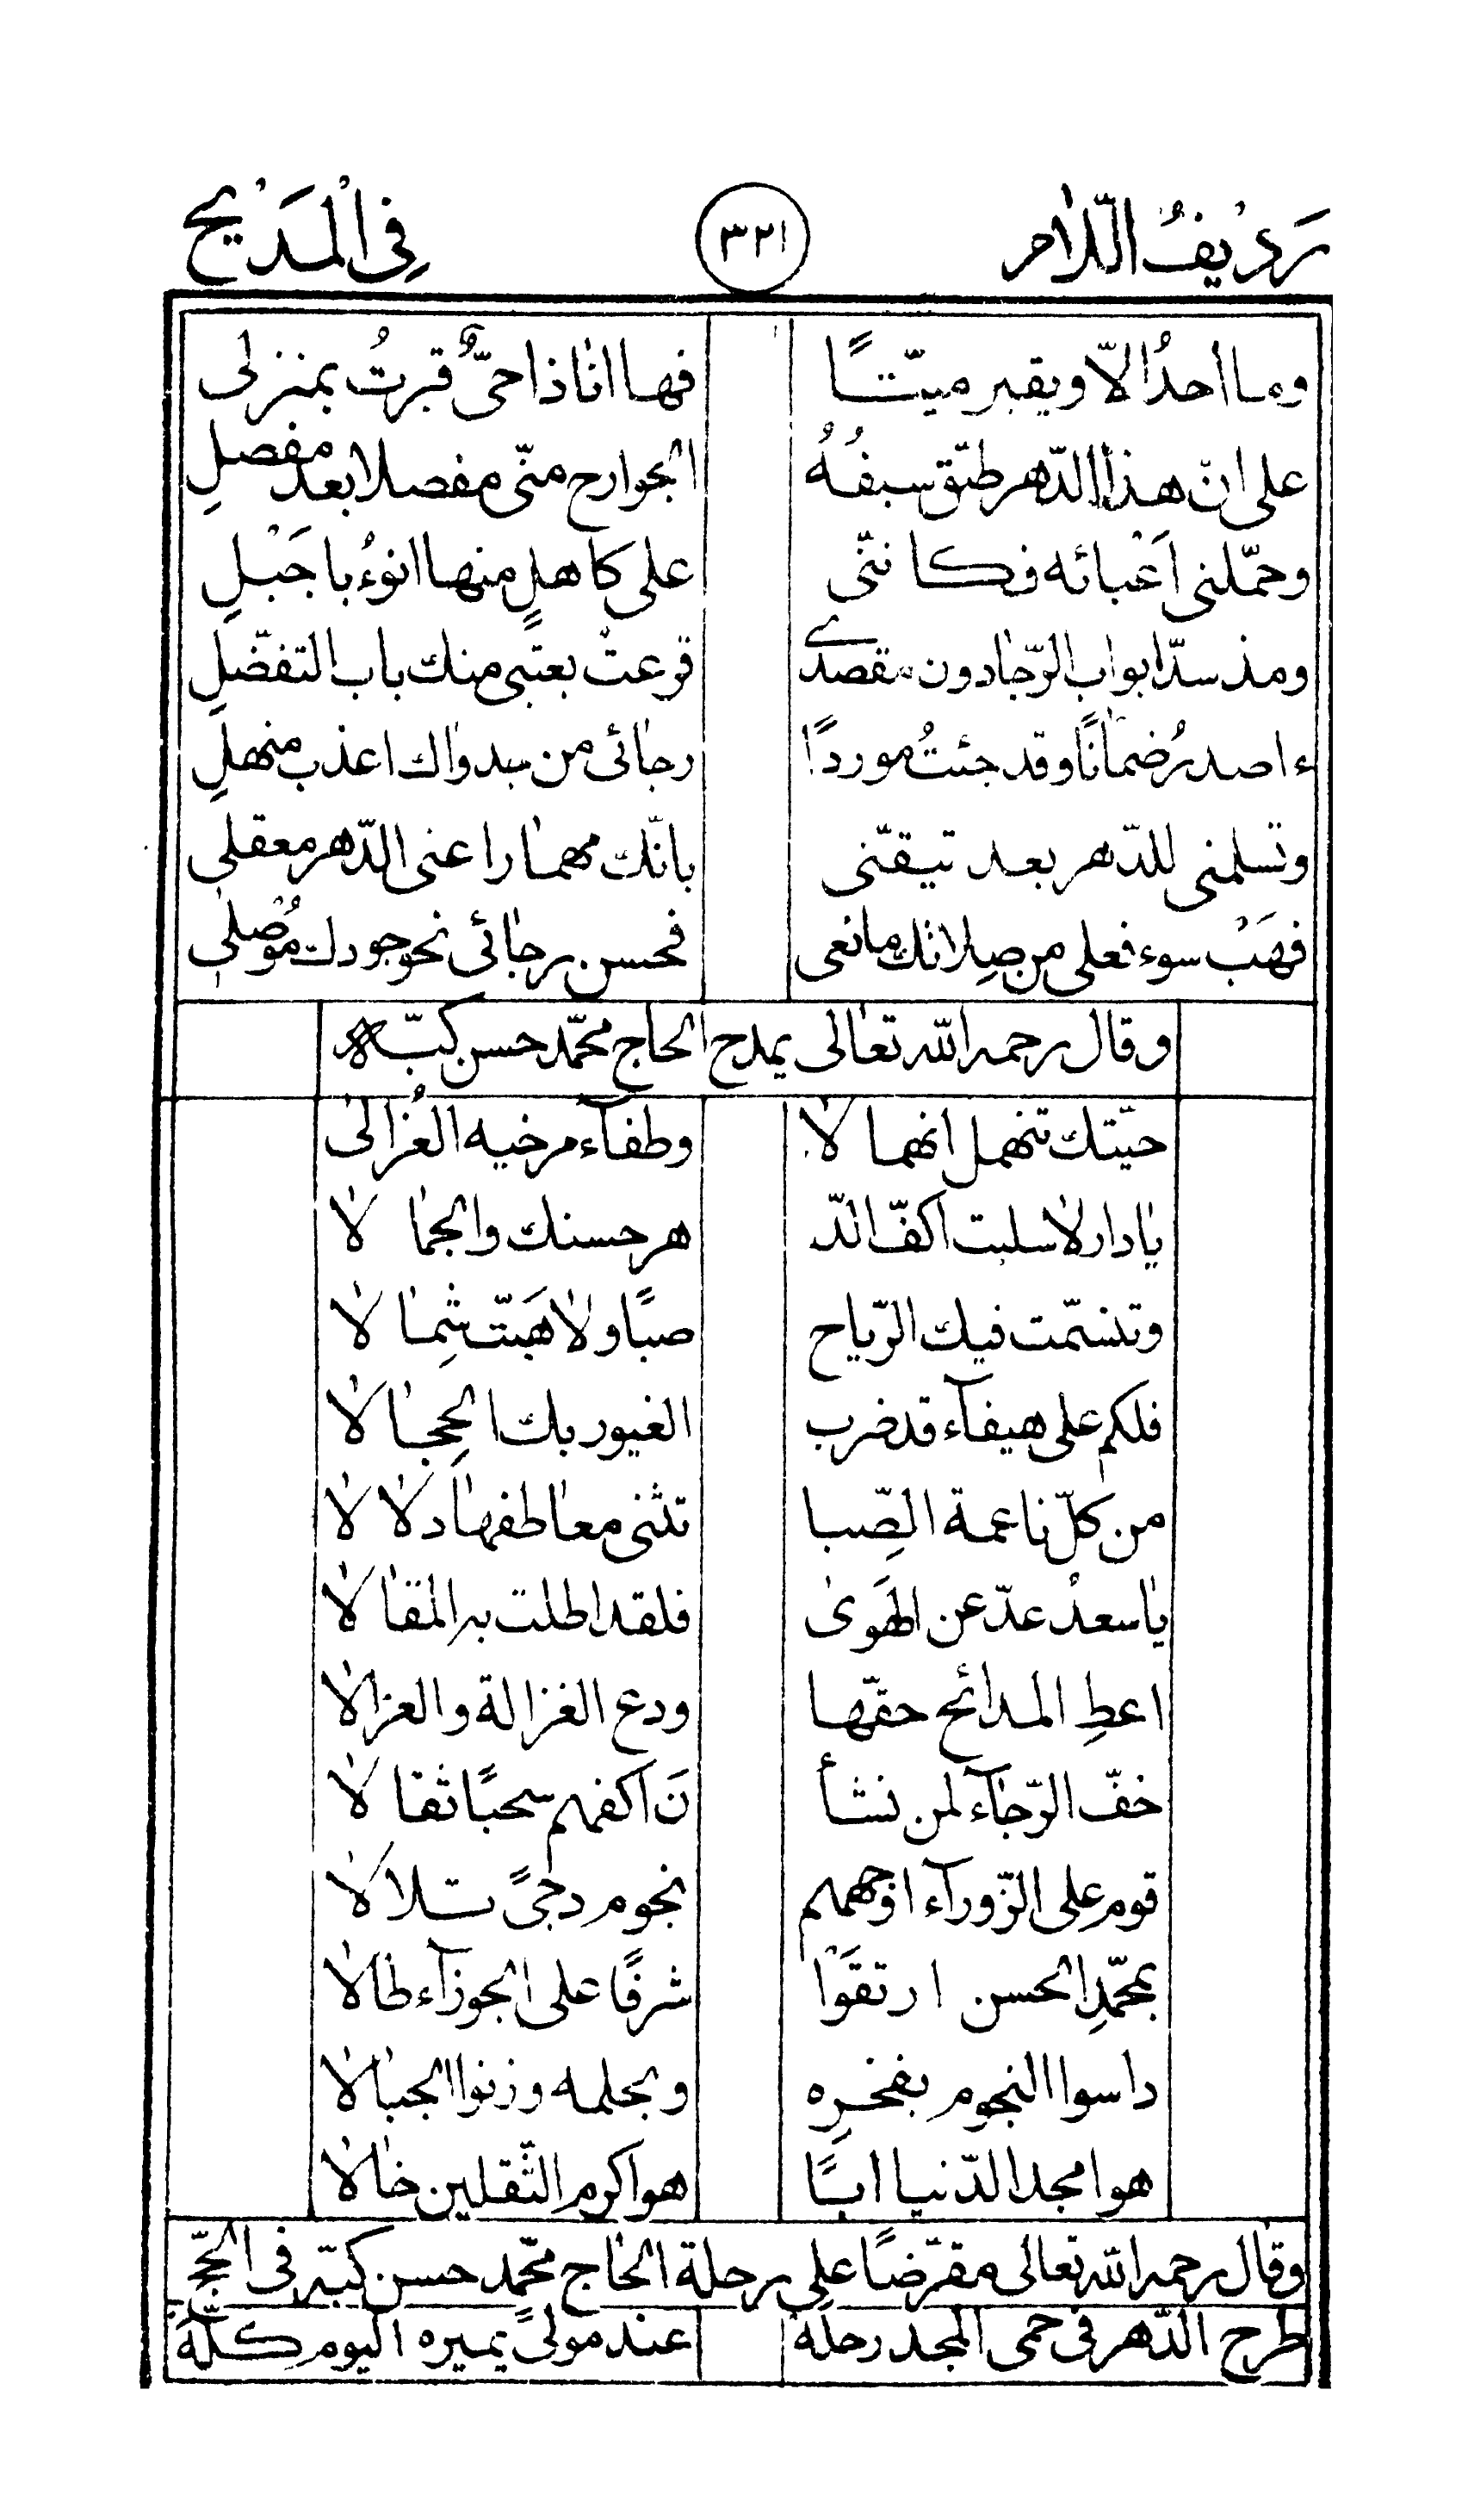 رَدِيْفُ اللّٰامِ ٣٢١ فِى الْمَدَيْحِ
وما احدُ الّا ويقبر ميّتًا فها انا ذا حىٌّ قبرتُ بمنزلى
على انّ هذا الدّهر طبّق سيفُهُ الجوارح منّى مفصلا بعد مفصلِ
وحمّلنى اَعْبائه فكاننّى على كاهلٍ منها انوءُ باجَبْلِ
ومذ سدّ ابواب الرّجا دون مقصدى قرعت بعتبى منك باب التفضّلِ
ءاصدرُ ضمانًا وقد جئتُ موردًا رجائى من بدواك اعذب منهلِ
وتسلمنى للدّهر بعد تيقنّى بانّك مهما راعنى الدّهر معقلى
فهَبْ سوء فعلى من صِلاتك مانعى فحسن رجائى نحو جودك مُوْصلى
وقال رحمه الله تعالى يمدح الحاج محمّد حسن كبّه
حيّتك تنهمل انهمالا وطفآء مرخيه العُزالى
يا دار لا سلبت اكفّ الدّ هر حسنك والجمالا
وتنسّمت فيك الرّياح صبًا ولا هَبّت شِمالا
فلكم على هيفآء قد ضرب الغيور بك الحِجالا
من كلّ ناعمة الصِّبا تثنى معاطفها دلالا
يا سعدُ عدّ عن الهَوىٰ فلقد اطلت به المقالا
اعطِ المدائح حقّها ودع الغزالة والغزالا
خفّ الرّجآء لمن نشأ نَ اكفهم سحبًا ثقالا
قوم على الزّورآء اوجههم نجوم دجىً تتلالا
بمحمّدِ الحسن ارتقَوْا شرفًا على الجوزآء طالا
داسوا النجوم بفخرِه وبحلمه وزنوا الجبالا
هو امجد الدّنيا ابًا هو اكرم الثّقلين خالا
وقال رحمه الله تعالى مقرّضًا على رحلة الحاج محمّد حسن كبّه فى الحجّ
طرح الدّهر فى حمى المجد رحلَه عند مولىً يميره اليوم كلّهَ